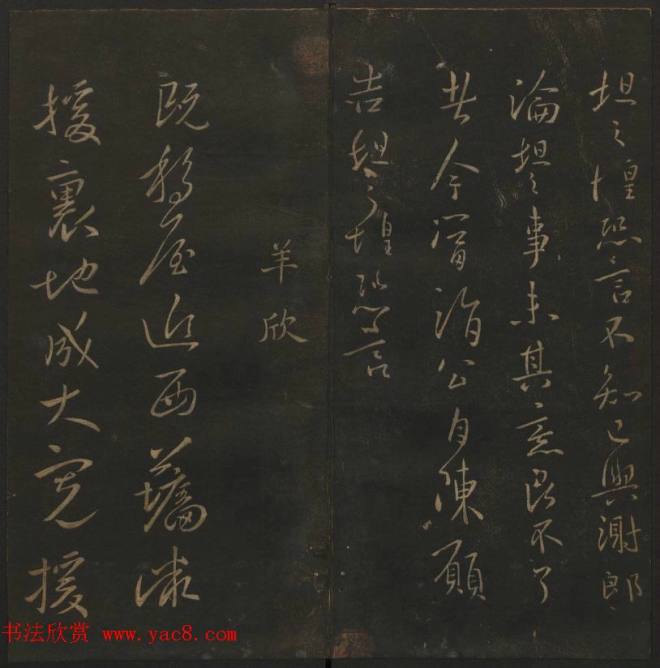 坦之惶恐言不知已與謝郎
論坦之事未其意良不了
甚今當詣公自陳願
告坦之惶恐言
羊欣
既移屋近西藩
援裏地成大寬援
书法欣赏 www.yac8.com